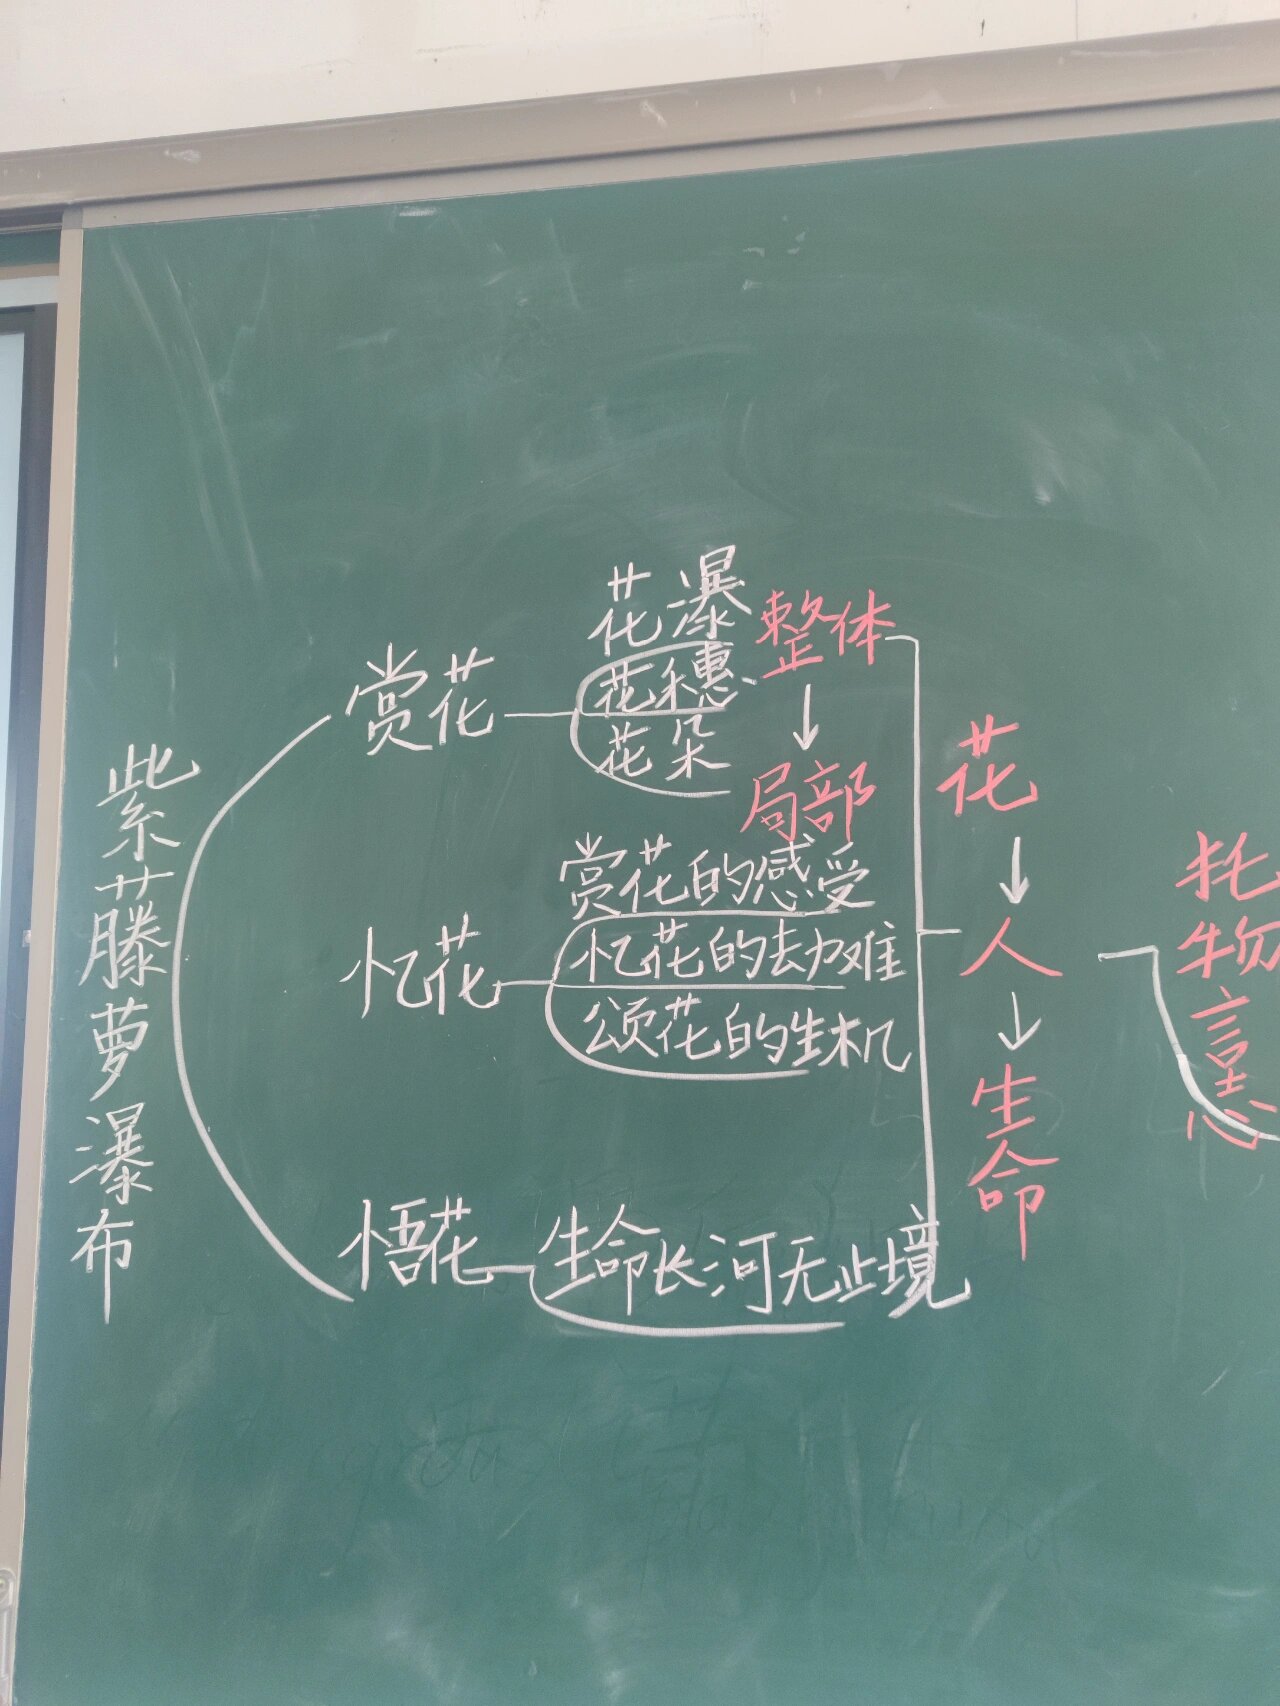 紫藤萝瀑布
赏花
花瀑
花穗
花朵
整体
↓
局部
忆花
赏花的感受
忆花的劫难
颂花的生机
悟花
生命长河无止境
花
↓
人
↓
生命
托物言志